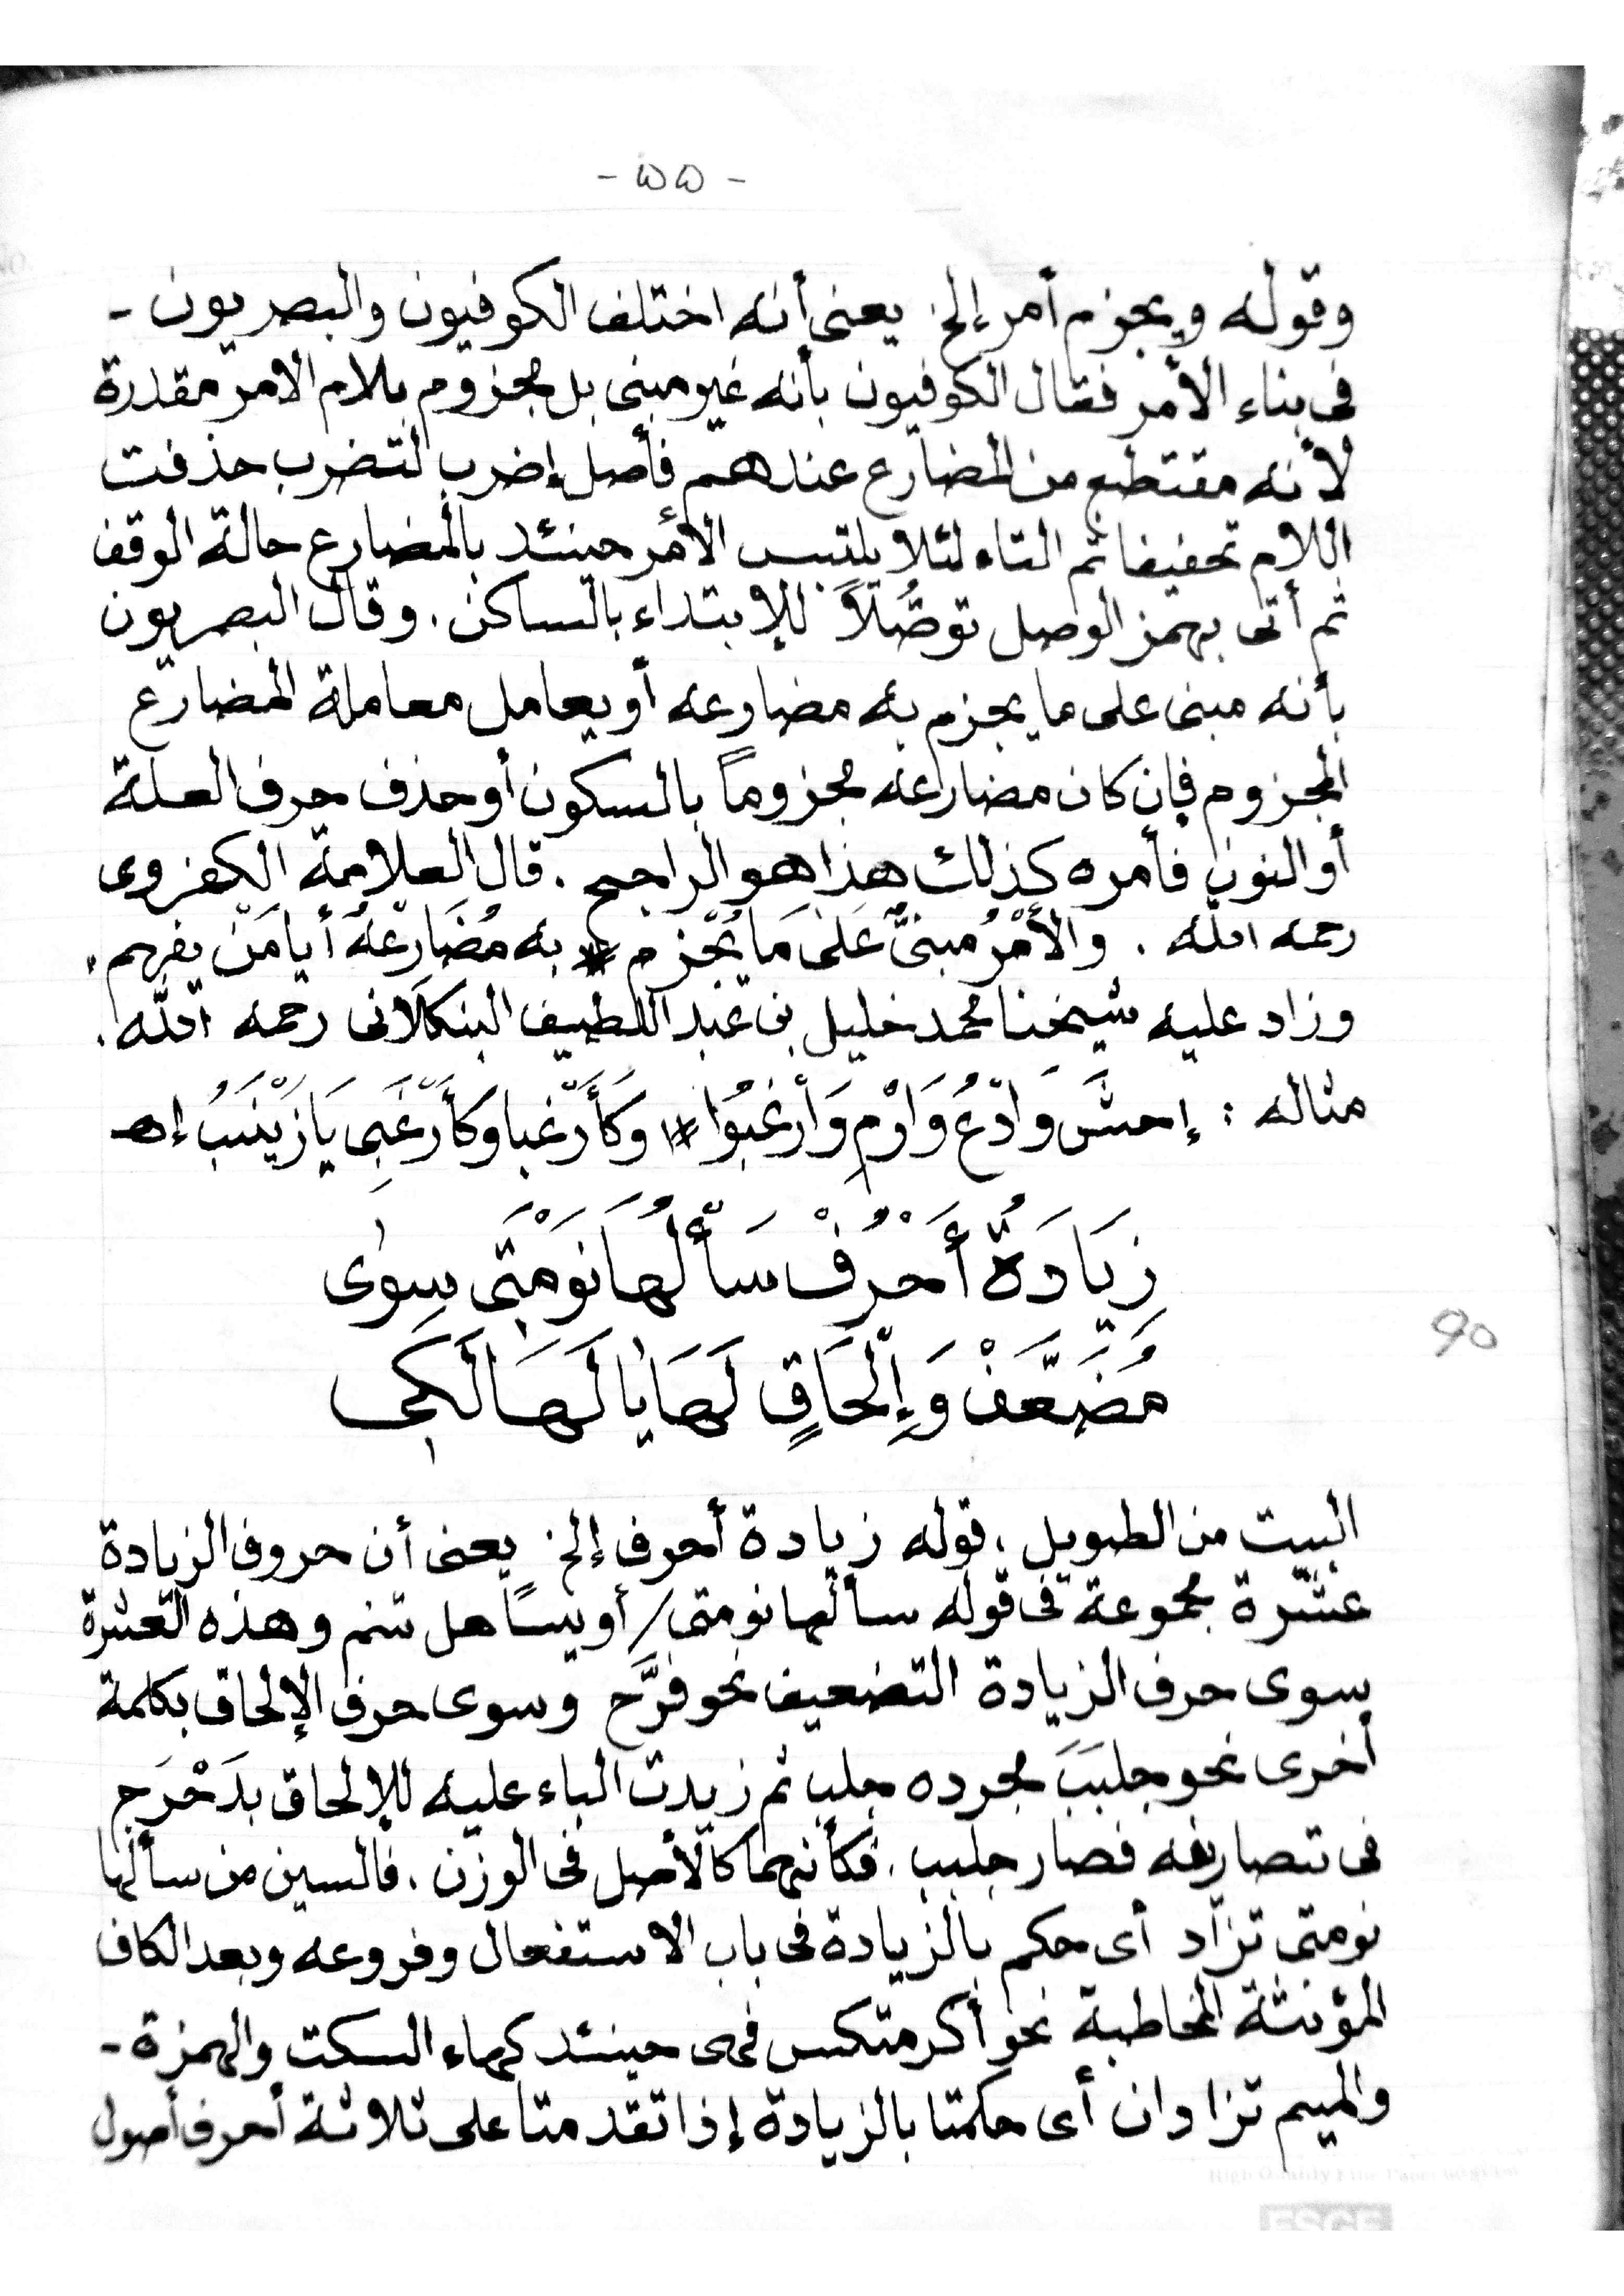 - ٥٥ -
وقوله ويجزم أمر إلخ يعنى أنه اختلف الكوفيون والبصريون -
فى بناء الأمر فقال الكوفيون بأنه غير مبنى بل مجزوم بلام الامر مقدرة
لأنه مقتطع من المضارع عندهم فأصل إضرب لتضرب حذفت
اللام تخفيفا ثم التاء لئلا يلتبس الأمر حينئد بالمضارع حالة الوقف
ثم أتى بهمز الوصل توصُّلاً للإبتداء بالساكن. وقال البصريون
بأنه مبنى على ما يجزم به مضارعه أو يعامل معاملة المضارع
المجزوم فإن كان مضارعه مجزوماً بالسكون أو حذف حرف العلة
أو النون فأمره كذلك هذا هو الراجح. قال العلامة الكفروى
رحمه الله. والأَمْرُ مبنىٌّ عَلَى مَا يُجْزم * به مُضَارعُهُ أيا مَنْ يفهم.
وزاد عليه شيخنا محمد خليل بن عبد اللطيف البنكلانى رحمه الله.
مثاله : إحشَ وَادْعُ وَارْمِ وَارْغَبُوا * وَكَأَرْغبا وكَأَرْغَبِى يَا زَيْنَبُ إهـ
زِيَادَةُ أَحْرُفْ سَأَلْتُهَا نَوْمَتِى سِوٰى
مُضَعَّفْ وَإِلْحَاقٍ لَهَا يٰا لَهَا لَكِى
90
البيت من الطويل، قوله زيادة أحرف إلخ يعنى أن حروف الزيادة
عشرة مجموعة فى قوله سألتها نومتى/ أو يسأهل تنم وهذه العشرة
سوى حرف الزيادة التضعيف نحو فرَّح وسوى حرف الإلحاق بكلمة
أخرى نحو جلبَبَ مجرده جلب ثم زيدت الباء عليه للإلحاق بدَحْرَج
فى تصاريفه فصار جلبب. فكأنهما كالأصل فى الوزن. فالسين من سألتها
نومتى تزاد أى حكم بالزيادة فى باب الاستفعال وفروعه وبعد الكاف
المؤنثة المخاطبة نحو أكرمتكس فهى حينئد كهاء السكت والهمزة -
والميم تزادان أى حكمتا بالزيادة إذا تقدمتا على ثلاثة أحرف أصول